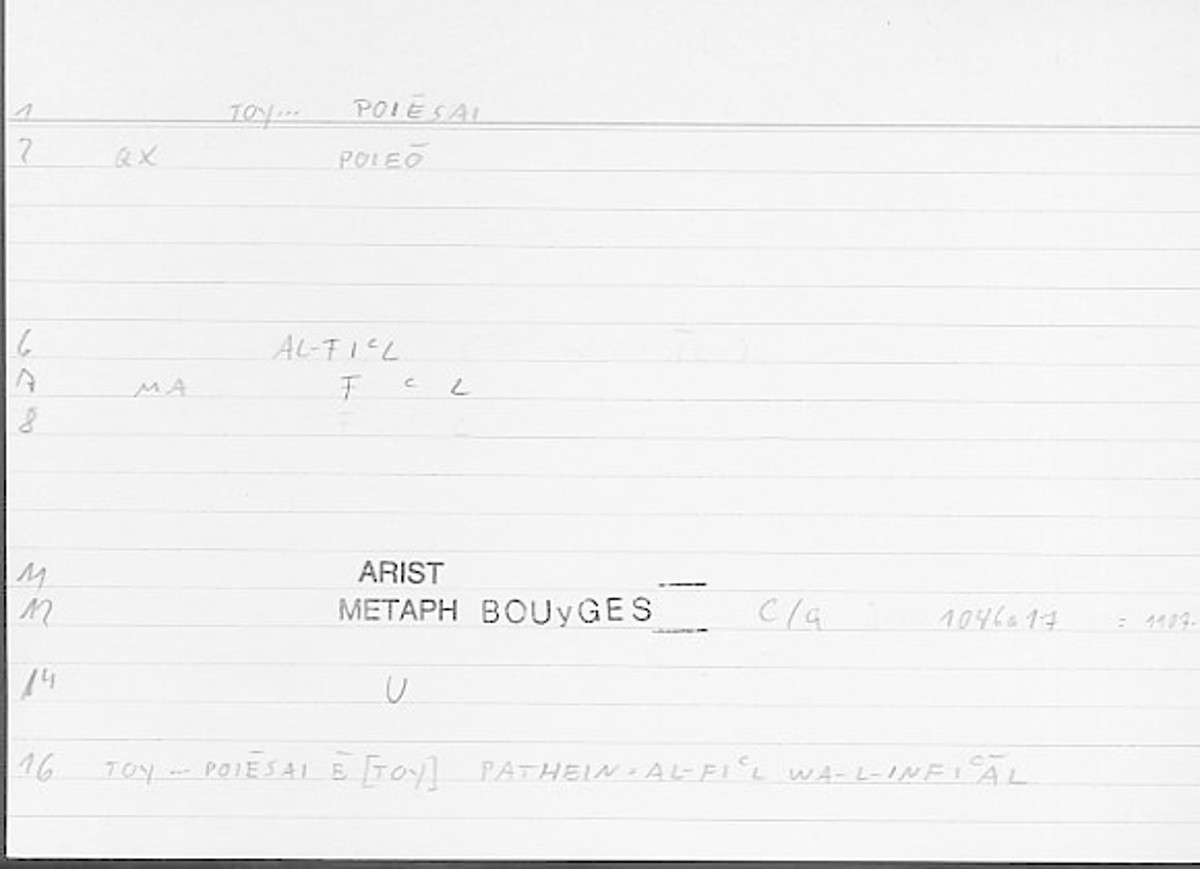 1 TOY... POIĒSAI
2 QX POIEŌ
6 AL-FIᶜL
7 MA F ᶜ L
8
11 ARIST
12 METAPH BOUyGES C/a 1046a17
14 U
16 TOY ... POIĒSAI Ē [TOY] PATHEIN - AL-FIᶜL WA-L-INFIᶜĀL